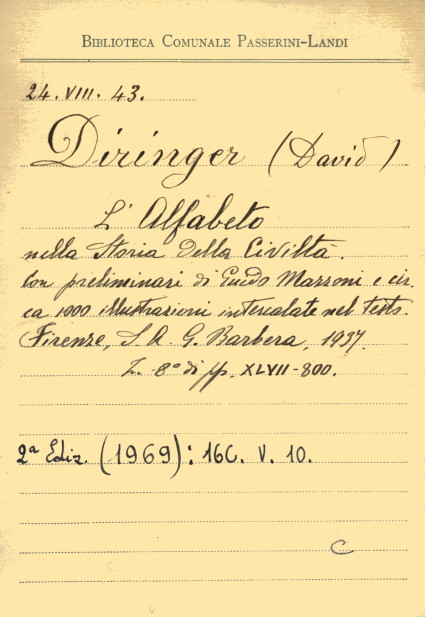 BIBLIOTECA COMUNALE PASSERINI-LANDI
24. VIII. 43.
Diringer (David)
L'Alfabeto
nella Storia della Civiltà.
Con preliminari di Guido Mazzoni e cir,
ca 1000 illustrazioni intercalate nel testo.
Firenze, S. A. G. Barbera, 1937.
in 8° di pp. XLVII-800.
2ª Ediz. (1969): 16C. V. 10.
C